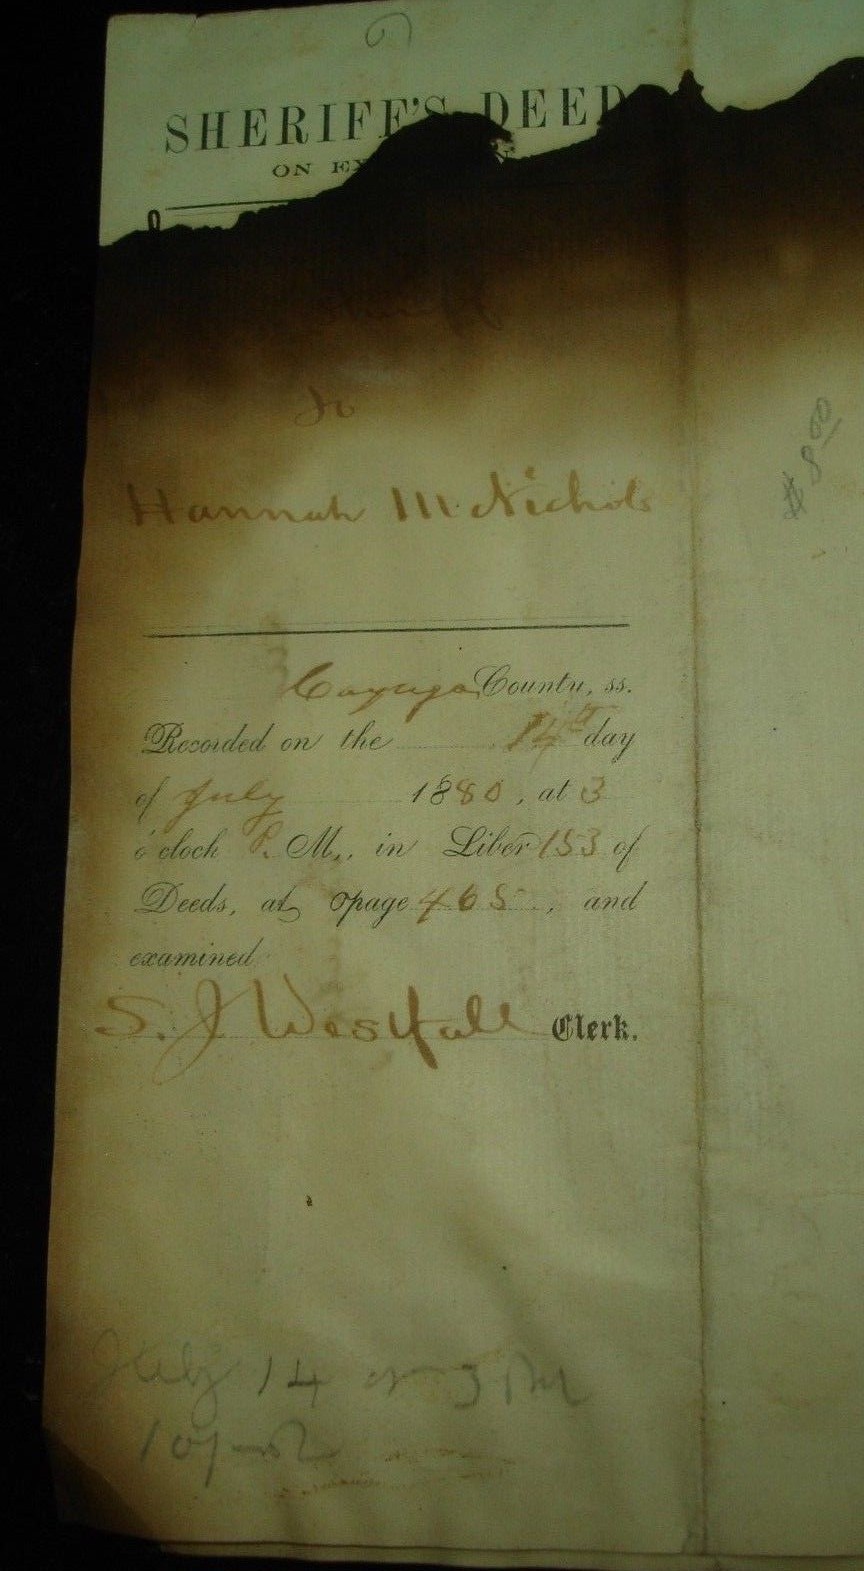 SHERIFF'S DEED
ON EX
Sheriff
To
Hannah McNichols
$8.00
Cayuga County, ss.
Recorded on the 14th day
of July 1880, at 3
o'clock P. M., in Liber 153 of
Deeds, at page 465, and
examined
S. J. Westfall Clerk.
July 14 at 3 PM